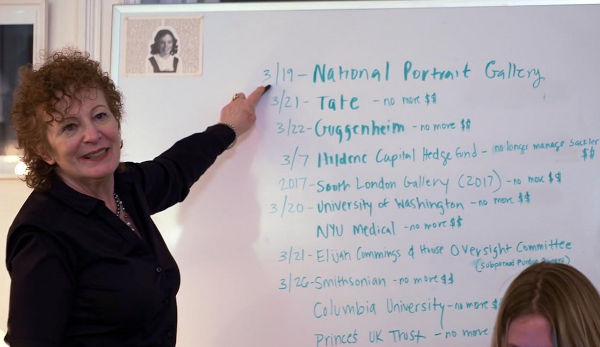 3/19 - National Portrait Gallery
3/21 - Tate - no more $$
3/22 - Guggenheim - no more $$
3/7 Hildene Capital Hedge Fund - no longer manage Sackler $$
2017 - South London Gallery (2017) - no more $$
3/20 - University of Washington - no more $$
NYU Medical - no more $$
3/21 - Elijah Cummings & House Oversight Committee
(Subpoenaed Purdue
3/26 - Smithsonian - no more $$
Columbia University - no more $
Prince's UK Trust - no more